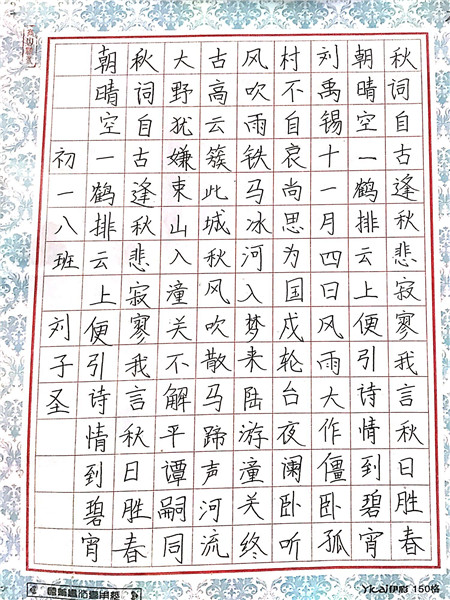 秋词自古逢秋悲寂寥我言秋日胜春
朝晴空一鹤排云上便引诗情到碧宵
刘禹锡十一月四日风雨大作僵卧孤
村不自哀尚思为国戍轮台夜阑卧听
风吹雨铁马冰河入梦来陆游潼关终
古高云簇此城秋风吹散马蹄声河流
大野犹嫌束山入潼关不解平谭嗣同
秋词自古逢秋悲寂寥我言秋日胜春
朝晴空一鹤排云上便引诗情到碧宵
初一八班 刘子圣
150格